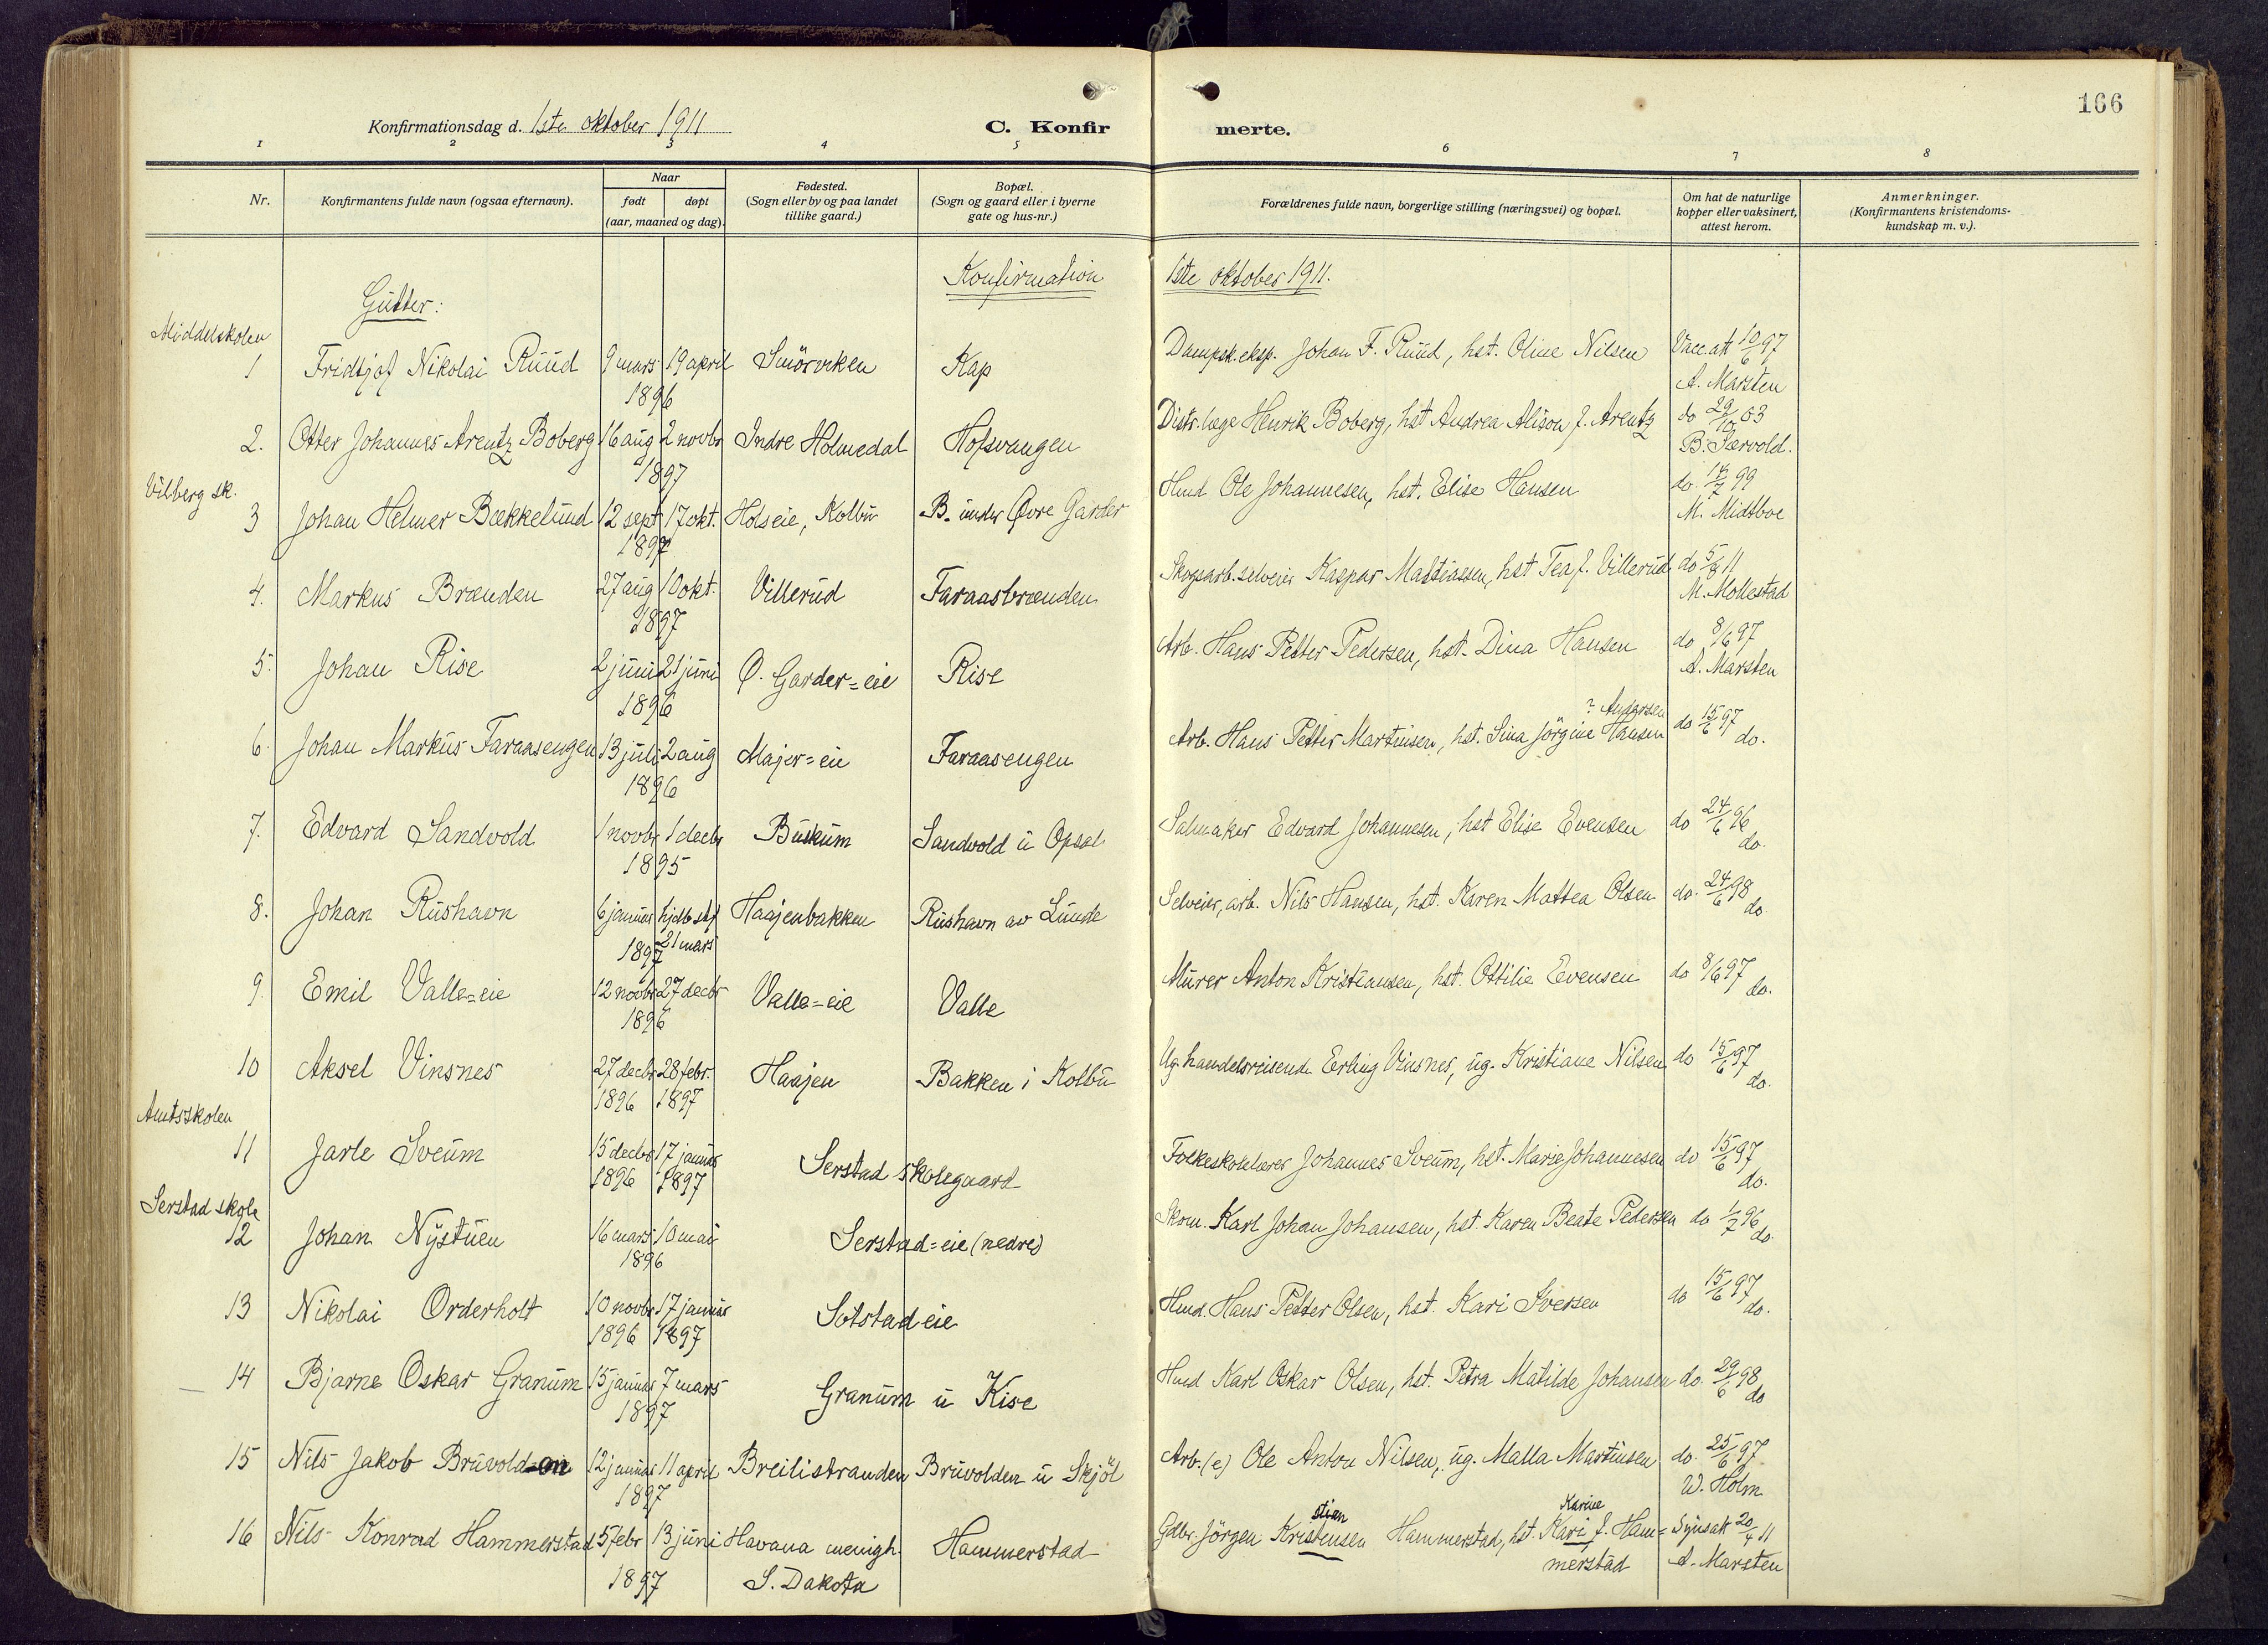 166
Konfirmationsdag d. 1ste oktober 1911
C. Konfirmerte.
1 2 3 4 5 6 7 8
Nr.
Konfirmantens fulde navn (ogsaa efternavn).
Naar
født døpt
(aar, maaned og dag).
Fødested.
(Sogn eller by og paa landet
tillike gaard.)
Bopæl.
(Sogn og gaard eller i byerne
gate og hus-nr.)
Forældrenes fulde navn, borgerlige stilling (næringsvei) og bopæl.
Om hat de naturlige
kopper eller vaksinert,
attest herom.
Anmerkninger.
(Konfirmantens kristendoms-
kundskap m. v.).
Konfirmation 1ste oktober 1911.
Gutter:
Middelskolen
1 Fridtjof Nikolai Ruud 9 mars 19 april Smörviken Kap Dampsk.eksp. Johan F. Ruud, hst. Oline Nilsen Vacc.att 10/6 97
1896 A. Marsten
2. Otter Johannes Arentz Boberg 16 aug 2 novbr Indre Holmedal Hofsvangen Distr.læge Henrik Boberg, hst Andrea Alison f. Arentz do 29/10 03
1897 B. Særvold.
Vilberg sk.
3 Johan Helmer Bækkelund 12 sept 17 okt. Holseie, Kolbu B. under Øvre Garder Hmd Ole Johannesen, hst. Elise Hansen do. 99
1897 M. Midtboe
4. Markus Brænden 27 aug 10 okt. Villerud Faraasbrænden Skogsarb. selveier Kaspar Mattiassen, hst Tea f. Villerud do 5/8 11
1897 M. Mollestad
5. Johan Rise 2 juni 21 juni Ø. Garder=eie Rise Arb. Hans Petter Pedersen, hst. Dina Hansen do 8/6 97
1896 A. Marsten
? Andersen
6. Johan Markus Faraasengen 13 juli 2 aug Majer=eie Faraasengen Arb. Hans Petter Martinsen, hst. Sina Jörgine Hansen do 15/6 97
1896 do.
7. Edvard Sandvold 1 novbr 1 decbr Buskum Sandvold u Opsal Salmaker Edvard Johannesen, hst Elise Evensen do 24/6 96
1895 do.
8. Johan Rushavn 6 januar hjdb stf Haajenbakken Rushavn av Lunde Selveier, arb. Nils Hansen, hst. Karen Mattea Olsen do. 24/6 98
1897 21 mars do.
9. Emil Valle=eie 12 novbr 27 decbr Valle=eie Valle Murer Anton Kristiansen, hst. Ottilie Evensen do 8/6 97
1896 do.
10 Aksel Vinsnes 27 decbr 28 febr. Haajen Bakken i Kolbu Ug. handelsreisende Erling Vinsnes, ug. Kristiane Nilsen do 15/6 97
1896 1897 do.
Amtsskolen
11 Jarle Sveum 15 decbr 17 januar Serstad skolegaard Folkeskolelærer Johannes Sveum, hst. Marie Johannesen do 15/6 97
1896 1897 do.
Serstad skole
12 Johan Nystuen 16 mars 10 mai Serstad=eie (nedre) Skom. Karl Johan Johansen, hst. Karen Beate Pedersen do 1/7 96
1896 do.
13 Nikolai Orderholt 10 novbr 17 januar Sotstad eie Hmd. Hans Petter Olsen, hst. Kari Iversen do 15/6 97
1896 1897 do.
14 Bjarne Oskar Granum 15 januar 7 mars Granum u Kise Hmd Karl Oskar Olsen, hst. Petra Matilde Johansen do. 29/6 98
1897 do
15 Nils Jakob Bruvold 12 januar 11 april Breilistranden Bruvolden u Skjöl Arb. (e) Ole Anton Nilsen, ug. Malla Martinsen do. 25/6 97
1897 W. Holm
stian Karine
16 Nils Konrad Hammerstad 5 febr 13 juni Havana menigh. Hammerstad Gdbr. Jörgen Kristensen Hammerstad, hst. Kari f. Ham= Synsatt 20/4 11
1897 S. Dakota merstad A. Marsten